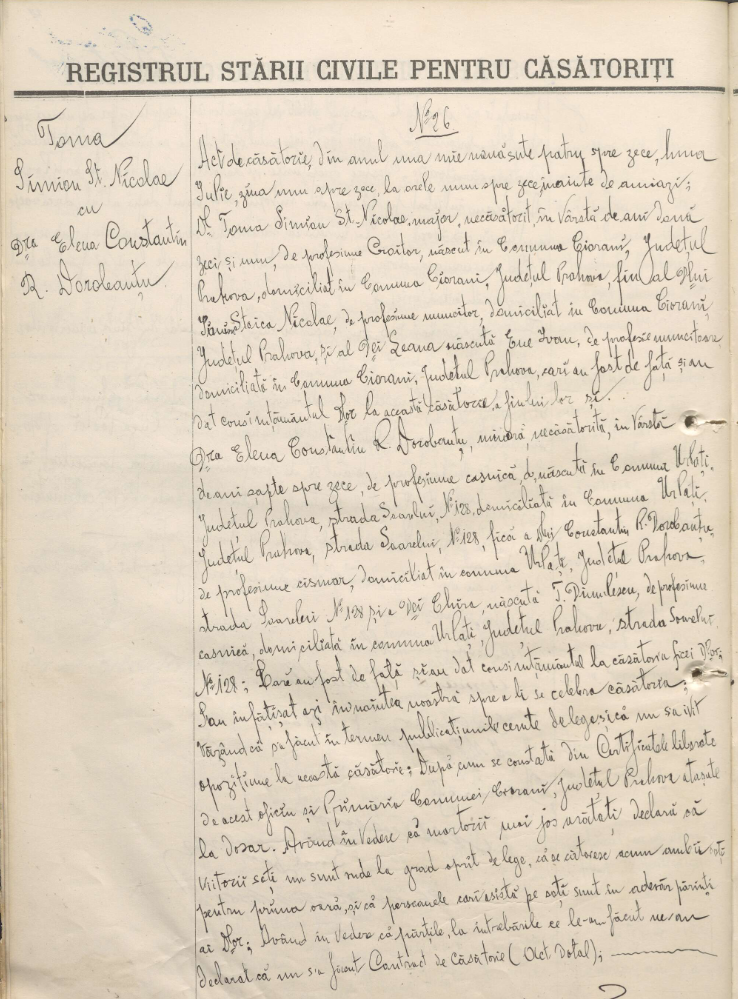 REGISTRUL STĂRII CIVILE PENTRU CĂSĂTORIȚI
Toma
Simion St. Nicolae
cu
Dra Elena Constantin
R. Dorobanțu
No 26
Act de căsătorie, din anul una mie nouă sute patru spre zece, luna
Iulie, ziua unu spre zece, la orele unu spre zece, înainte de amiazi;
Dl Toma Simion St. Nicolae, major, necăsătorit, în vârstă de ani două
zeci și unu, de profesiune Croitor, născut în Comuna Ciorani, Județul
Prahova, domiciliat în Comuna Ciorani, Județul Prahova, fiu al Dlui
Stoica Nicolae, de profesiune muncitor, domiciliat în Comuna Ciorani,
Județul Prahova, și al Dei Leana născută Ene Ivan, de profesie muncitoare
domiciliată în Comuna Ciorani, Județul Prahova, cari au fost de față și au
dat consimțământul Dlor la această căsătorie, a fiului lor și.
Dra Elena Constantin R. Dorobanțu, minoră, necăsătorită, în vârstă
de ani șapte spre zece, de profesiune casnică, născută în Comuna Urlați,
Județul Prahova, strada Soarelui, No 128, domiciliată în Comuna Urlați,
Județul Prahova, strada Soarelui, No 128, fiică a dlui Constantin R. Dorobanțu,
de profesiune cismar, domiciliat în comuna Urlați, Județul Prahova
strada Soarelui No 128 și a Dei Chira, născută T. Dumitrescu, de profesiune
casnică, domiciliată în comuna Urlați, Județul Prahova, strada Soarelui
No 128; Care au fost de față și au dat consimțământul la căsătoria fiicei Dlor;
S'au înfățișat azi înnaintea noastră spre a li se celebra căsătoria;
Văzând că s'a făcut în termen publicațiunile cerute de lege și că nu s'a ivit
opozițiune la această căsătorie; După cum se constată din Certificatele liberate
de acest oficiu și Primăria Comunei Ciorani, Județul Prahova atașate
la Dosar. Având în Vedere că martorii mai jos arătați, declară că
viitorii soți nu sunt rude la grad oprit de lege, că se căsătoresc acum ambii soți
pentru prima oară, și că persoanele cari asistă pe soți sunt în adevăr părinții
ai Dlor; Având în Vedere că părțile, la întrebările ce le-am făcut ne-au
declarat că nu s'a făcut Contract de Căsătorie (Act Dotal);